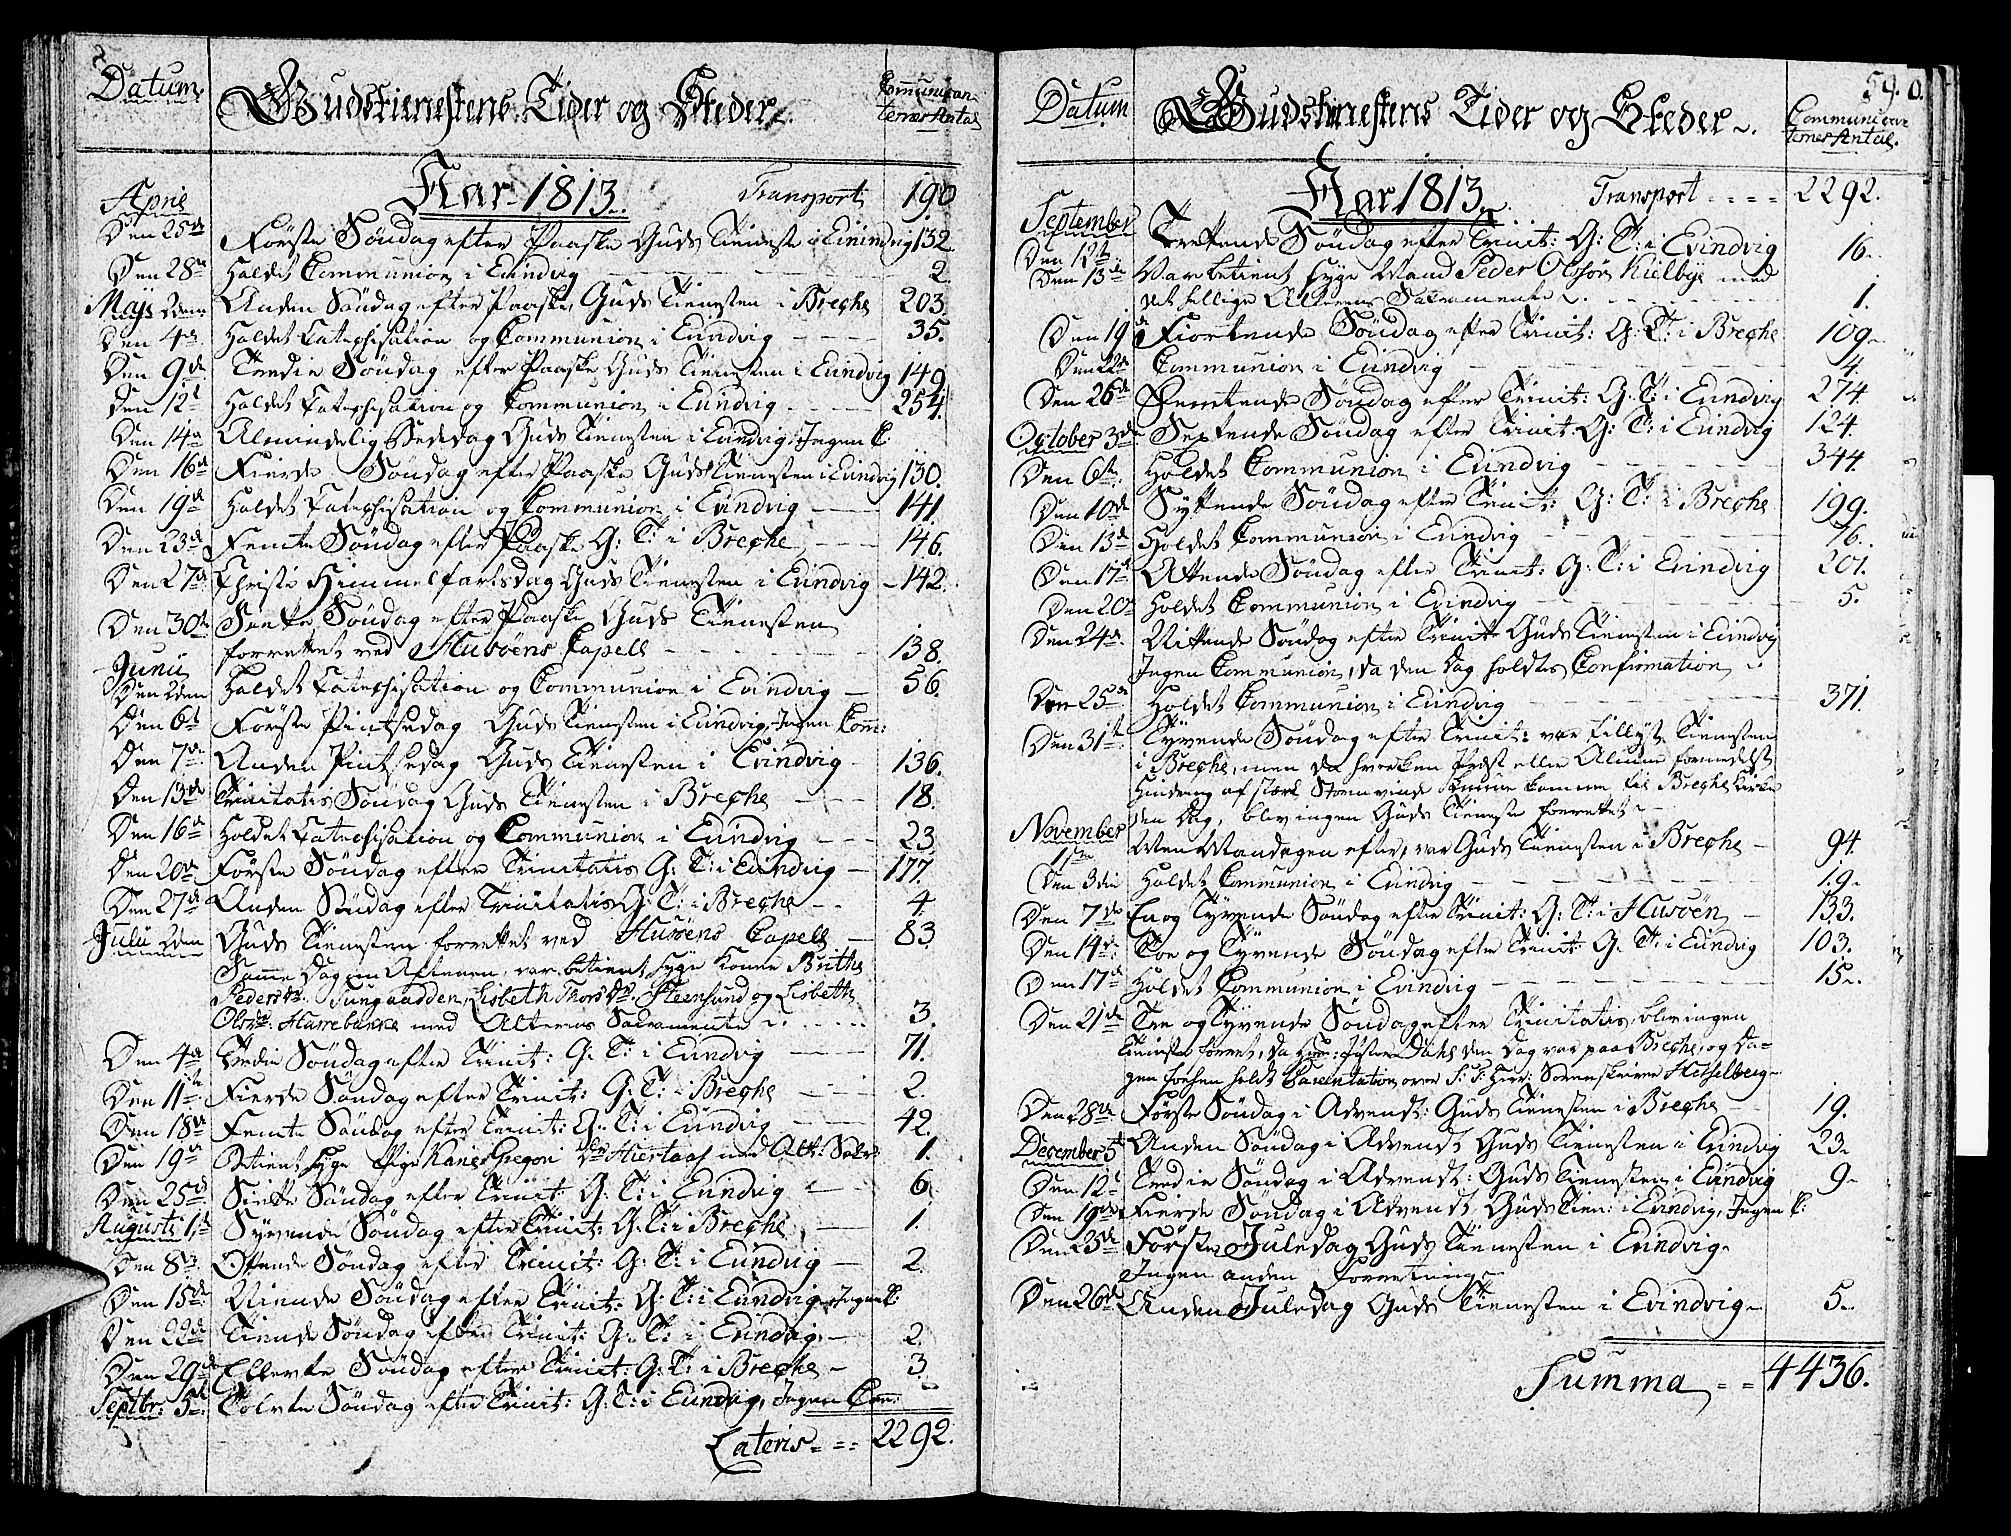 Datum. Gudstienestens Tider og Steder. Communican
ternes Antal
Aar 1813. Transport 190
April
Den 25de Første Søndag efter Paaske Guds Tieneste i Evindvig 132.
Den 28de Holdet Communion i Evindvig 2.
Maji 2den Anden Søndag efter Paaske, Guds Tienesten i Breche 203.
Den 4de Holdet Catechisation og Communion i Evindvig 35.
Den 9de Tredie Søndag efter Paaske Guds Tienesten i Evindvig 149
Den 12te Holdet Catechisation og Communion i Evindvig 254.
Den 14de Almindelig Bededag Guds Tienesten i Evindvig, Ingen C:
Den 16de Fierde Søndag efter Paaske Guds Tienesten i Evindvig 130.
Den 19de Holdet Catechisation og Communion i Evindvig 141.
Den 23de Femte Søndag efter Paaske G: T: i Breche 146.
Den 27de Christi Himmelfartsdag Guds Tienesten i Evindvig 142.
Den 30te Siette Søndag efter Paaske Guds Tienesten
forrettet ved Husøens Capell 138.
Junii
Den 2den Holdet Catechisation og Communion i Evindvig 56.
Den 6te Første Pintsedag Guds Tienesten i Evindvig, Ingen Com:
Den 7de Anden Pintsedag Guds Tienesten i Evindvig 136.
Den 13de Trinitatis Søndag Guds Tienesten i Breche 18.
Den 16de Holdet Catechisation og Communion i Evindvig 23.
Den 20de Første Søndag efter Trinitatis G: T: i Evindvig 177.
Den 27de Anden Søndag efter Trinitatis G: T: i Breche 4.
Julii 2den Guds Tienesten forrettet ved Husøens Capell 83.
Samme Dag om Aftenen, var betient syge Konne Brithe
Pedersdr. Tungaadden, Lisbeth Thorsdr. Steensund og Lisbeth
Olsdr: Harrebakke med Alterens Sacramente 3.
Den 4de Tredie Søndag efter Trinit: G: T: i Evindvig 71.
Den 11te Fierde Søndag efter Trinit: G: T: i Breche 2.
Den 18de Femte Søndag efter Trinit: G: T: i Evindvig 42.
Den 19de Betient syge Pige Gregori dtr Hiertaas med Alt: Sacr: 1.
Den 25de Siette Søndag efter Trinit: G: T: i Evindvig 6.
Augusti 1ste Syvende Søndag efter Trinit: G: T: i Breche 1.
Den 8de Ottende Søndag efter Trinit: G: T: i Evindvig 2.
Den 15de Niende Søndag efter Trinit: G: T: i Evindvig, Ingen C:
Den 22de Tiende Søndag efter Trinit: G: T: i Evindvig 2.
Den 29de Ellevte Søndag efter Trinit: G: T: i Breche 3
Septbr: 5te Tolvte Søndag efter Trinit: G: T: i Evindvig, Ingen Com:
Lateris 2292.
59.
Datum Gudstienestens Tider og Steder. Communican
ternes Antal.
Aar 1813. Transport 2292.
September
Den 12te Trettende Søndag efter Trinit: G: T: i Evindvig 16.
Den 13de Var betient syge Mand Peder Olssøn Kielbye med
det hellige Alterens Sacramente 1.
Den 19de Fiortende Søndag efter Trinit: G: T: i Breche 109
Den 22de Communion i Evindvig 4.
Den 26de Femtende Søndag efter Trinit: G: T: i Evindvig 274.
October 3de Sextende Søndag efter Trinit: G: T: i Evindvig 124.
Den 6te Holdet Communion i Evindvig 344.
Den 10de Syttende Søndag efter Trinit: G: T: i Breche 199.
Den 13de Holdet Communion i Evindvig 76.
Den 17de Attende Søndag efter Trinit: G: T: i Evindvig 201.
Den 20de Holdet Communion i Evindvig 5.
Den 24de Nittende Søndag efter Trinit: Guds Tienesten i Evindvig
Ingen Communion, da den Dag holdtes Confirmation
Den 25de Holdet Communion i Evindvig 371.
Den 31te Tyvende Søndag efter Trinit: var tillyst Tienesten
i Breche, men da hverken Præst eller Almue formedelst
Hindring af stærk Storm vinde kunne komme til Breche Kirke
den Dag, blev ingen Guds Tieneste forrettet
November
1ste Men Mandagen efter, var Guds Tienesten i Breche 94.
Den 3die Holdet Communion i Evindvig 19.
Den 7de En og Tyvende Søndag efter Trinit: G: T: i Husøen 133.
Den 14de Toe og Tyvende Søndag efter Trinit: G: T: i Evindvig 103.
Den 17de Holdet Communion i Evindvig 15.
Den 21de Tre og Tyvende Søndag efter Trinitatis, blev ingen
Tieneste forret, da Hr: Dahl den Dag var paa Breche, og Da-
gen forhen holdt Parentation over S: T: Herr: Sorenskriver Hesselberg
Den 28de Første Søndag i Advendt: Guds Tienesten i Breche 19.
December 5te Anden Søndag i Advendt Guds Tienesten i Evindvig 23.
Den 12te Tredie Søndag i Advendt: Guds Tienesten i Evindvig 9.
Den 19de Fierde Søndag i Advendt, Guds Tien: i Evindvig, Ingen C:
Den 25de Første Juledag Guds Tienesten i Evindvig.
Ingen anden Forretning
Den 26de Anden Juledag Guds Tienesten i Evindvig 5.
Summa 4436.